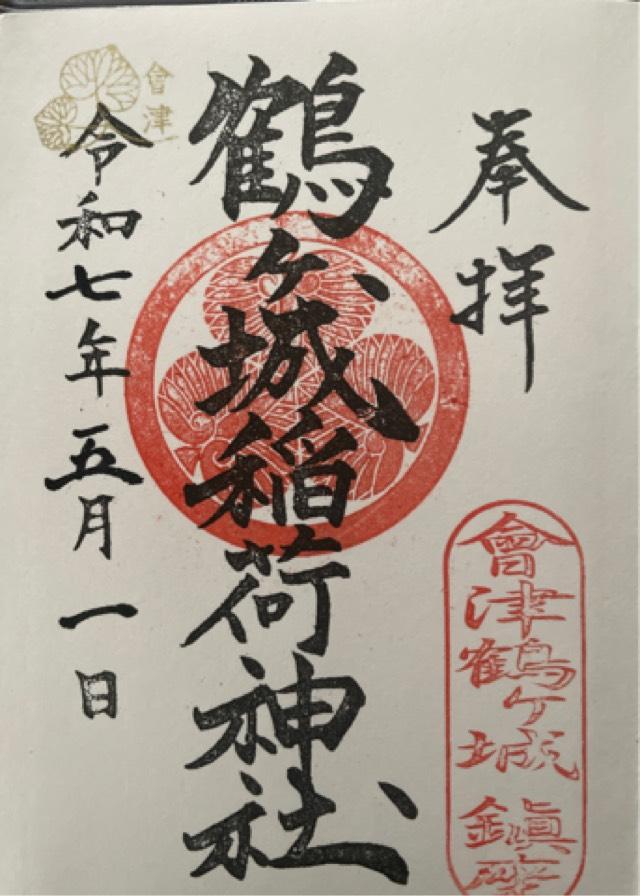 奉拝
會津鶴ヶ城鎮座
鶴ヶ城稲荷神社
令和七年五月一日
會津